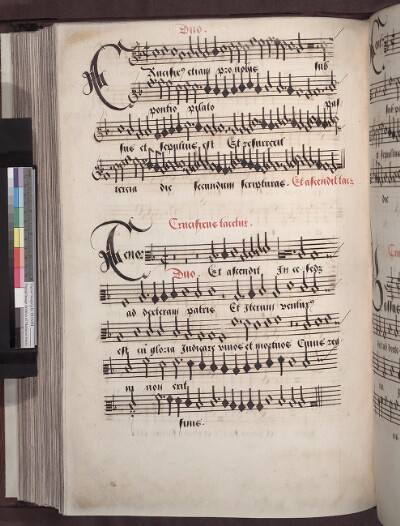 Duo.
Crucifixus etiam pro nobis sub
pontio pilato pas
sus et sepultus est Et resurrexit
tercia die secundum scripturas. Et ascendit tacet
Crucifixus tacetur.
Tenor
Duo. Et ascendit In ce sedet
ad dexteram patris Et Iterum venturus
est cu gloria Iudicare vivos et mortuos Cuius reg
ni non erit
finis.